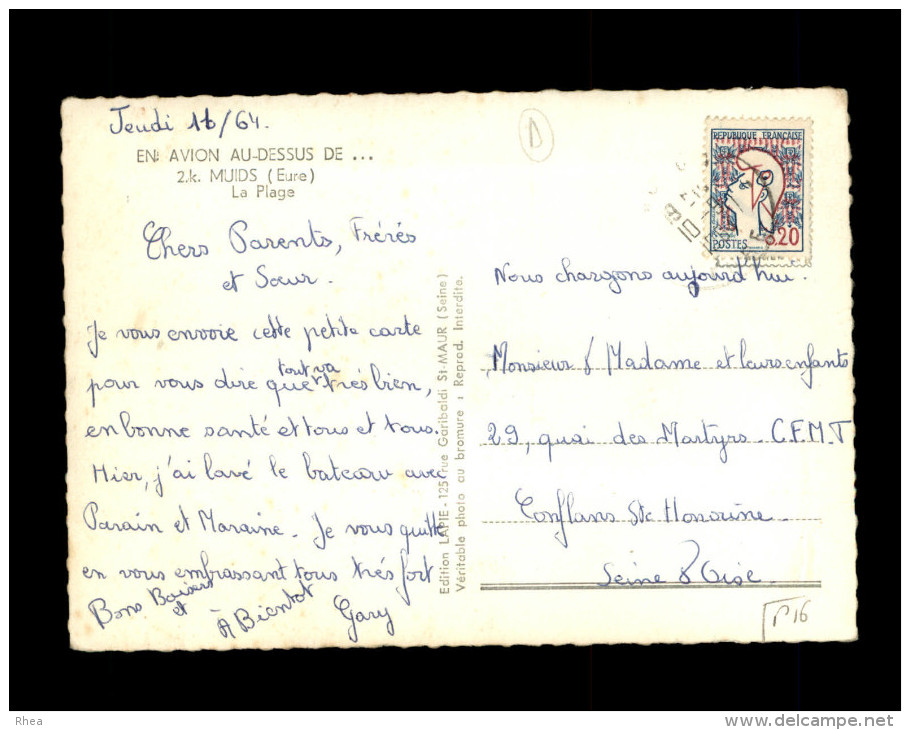 Jeudi 16/64.
EN AVION AU-DESSUS DE ...
2.k. MUIDS (Eure)
La Plage
Chers Parents, Frérés
et Sœur.
Je vous envoie cette petite carte
pour vous dire que tout va trés bien,
en bonne santé et tous et tous.
Hier, j'ai lavé le bateau avec
Parain et Maraine. Je vous quitte
en vous embrassant tous trés fort
Bons Baisers
et
À Bientot
Gary
Edition LAPIE - 125 rue Garibaldi St-MAUR (Seine)
Véritable photo au bromure : Reprod. Interdite.
D
REPUBLIQUE FRANÇAISE
POSTES
0.20
Nous chargeons aujourd'hui.
Monsieur & Madame et leurs enfants
29, quai des Martyrs. C.F.M.T
Conflans Ste Honorine.
Seine & Oise.
P16
Rhea
www.delcampe.net